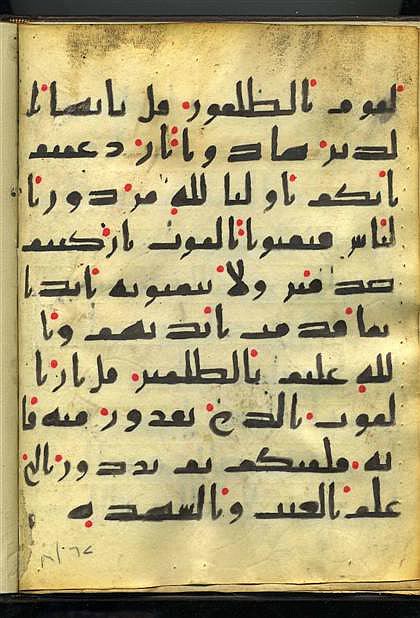 لقوم الظلمين قل يايها ا
لذين هادوا ان زعمتم
انكم اوليا لله من دون ا
لناس فتمنوا الموت ان كنتم
صدقين ولا يتمنونه ابدا
بما قدمت ايديهم وا
لله عليم بالظلمين قل ان ا
لموت الذي تفرون منه فا
نه ملقيكم ثم تردون الى
علم الغيب والشهدة